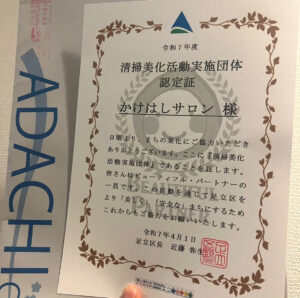 ADACHI
令和7年度
清掃美化活動実施団体
認定証
かけはしサロン 様
日頃より、まちの美化にご協力いただき
ありがとうございます。ここに『清掃美化
活動実施団体』であることを証します。
皆さんはビューティフル・パートナーの
一員です。この活動を通して足立区を
より「美しい」「安全な」まちにするため
これからもご協力をお願いいたします。
令和7年4月1日
足立区長 近藤 弥生
BEAUTIFUL
PARTNER